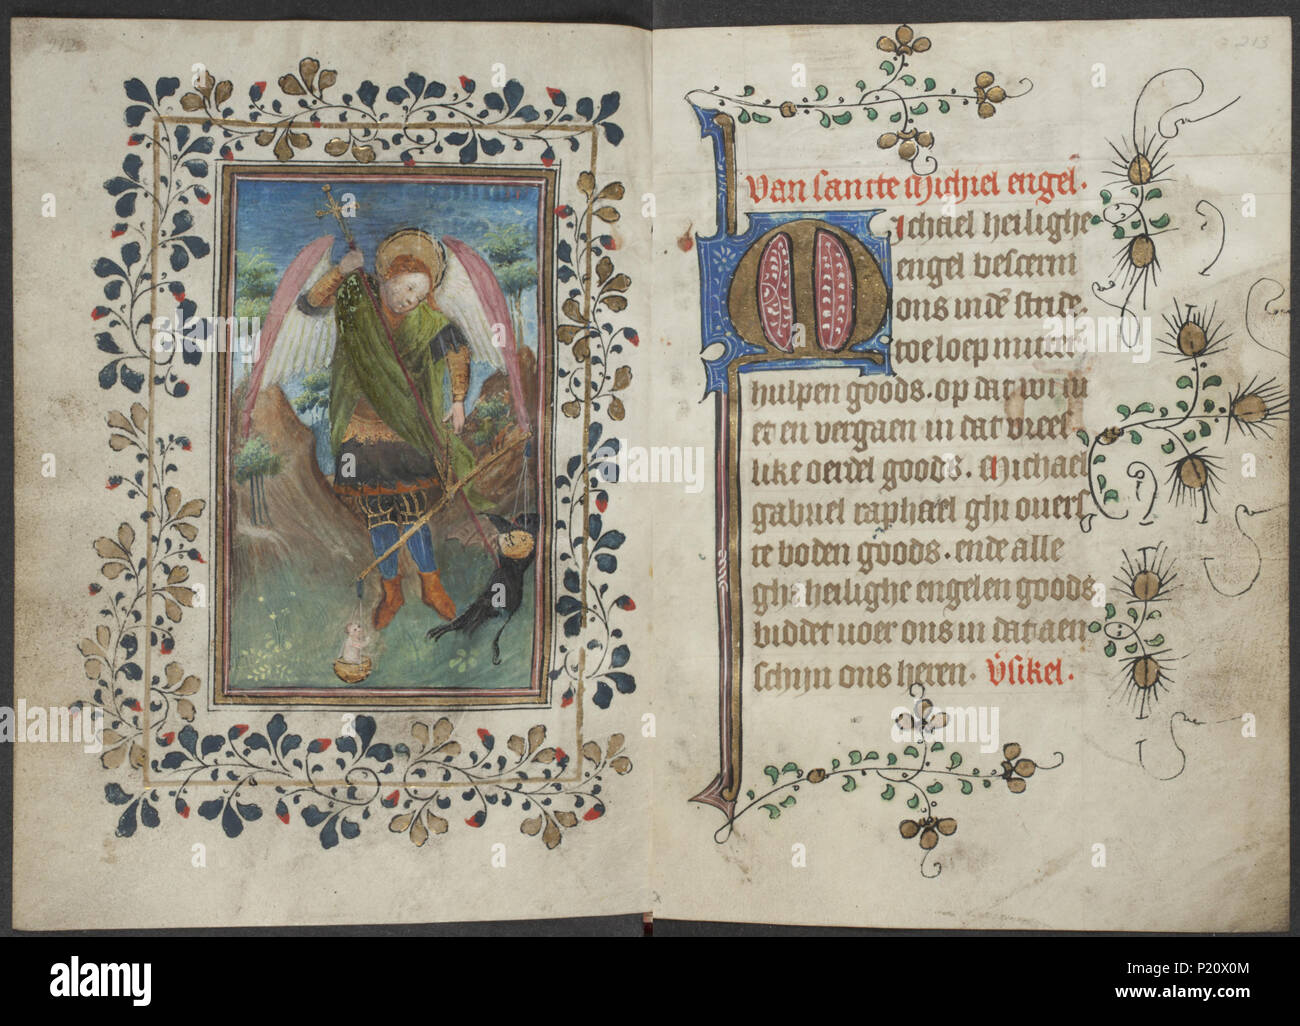 212
213
Van sancte michiel engel.
Michael heilighe
engel bescermt
ons indē stride.
toe loep mitter
hulpen goods. op dat wi niet
en vergaen in dat vrees
like oerdel goods. Michael
gabriel raphael ghi overs
te boden goods. ende alle
ghi heilighe engelen goods
biddet voer ons in dat aen
schijn ons heren. v̄sikel.
alamy
Image ID: P20X0M
www.alamy.com